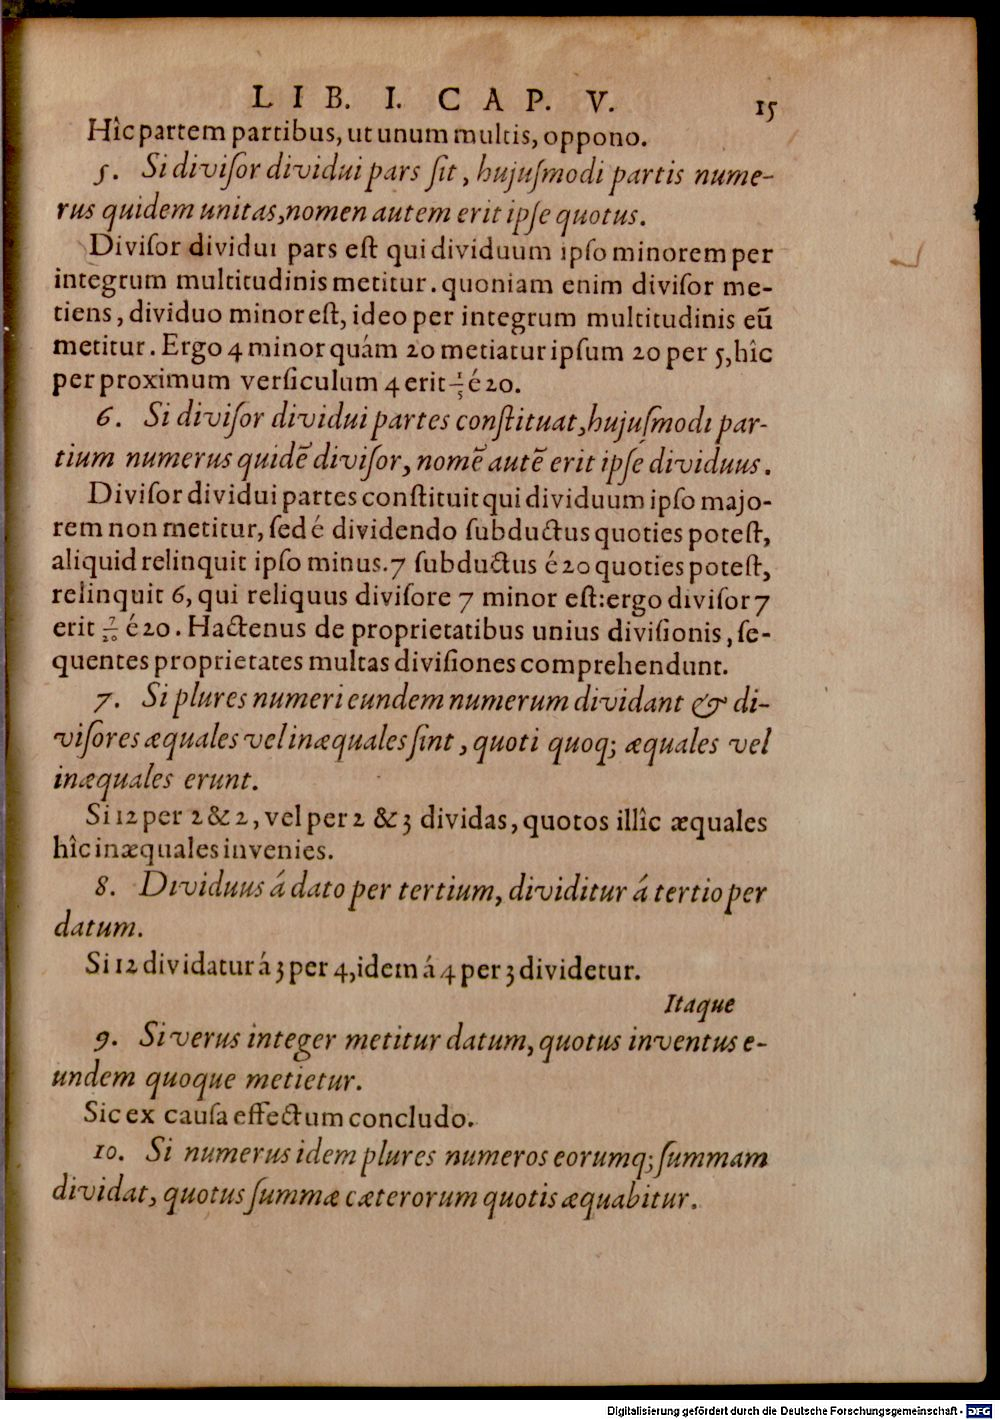 LIB. I. CAP. V. 15
Hîc partem partibus, ut unum multis, oppono.
5. Si diviſor dividui pars ſit, hujuſmodi partis nume-
rus quidem unitas, nomen autem erit ipſe quotus.
Diviſor dividui pars eſt qui dividuum ipſo minorem per
integrum multitudinis metitur. quoniam enim diviſor me-
tiens, dividuo minor eſt, ideo per integrum multitudinis eū
metitur. Ergo 4 minor quám 20 metiatur ipſum 20 per 5, hîc
per proximum verſiculum 4 erit 1/5 é 20.
6. Si diviſor dividui partes conſtituat, hujuſmodi par-
tium numerus quidē diviſor, nomē autē erit ipſe dividuus.
Diviſor dividui partes conſtituit qui dividuum ipſo majo-
rem non metitur, ſed é dividendo ſubductus quoties poteſt,
aliquid relinquit ipſo minus. 7 ſubductus é 20 quoties poteſt,
relinquit 6, qui reliquus diviſore 7 minor eſt: ergo diviſor 7
erit 7/20 é 20. Hactenus de proprietatibus unius diviſionis, ſe-
quentes proprietates multas diviſiones comprehendunt.
7. Si plures numeri eundem numerum dividant & di-
viſores æquales vel inæquales ſint, quoti quoq; æquales vel
inæquales erunt.
Si 12 per 2 & 2, vel per 2 & 3 dividas, quotos illîc æquales
hîc inæquales invenies.
8. Dividuus á dato per tertium, dividitur á tertio per
datum.
Si 12 dividatur á 3 per 4, idem á 4 per 3 dividetur.
Itaque
9. Si verus integer metitur datum, quotus inventus e-
undem quoque metietur.
Sic ex cauſa effectum concludo.
10. Si numerus idem plures numeros eorumq; ſummam
dividat, quotus ſummæ cæterorum quotis æquabitur.
Digitalisierung gefördert durch die Deutsche Forschungsgemeinschaft - DFG